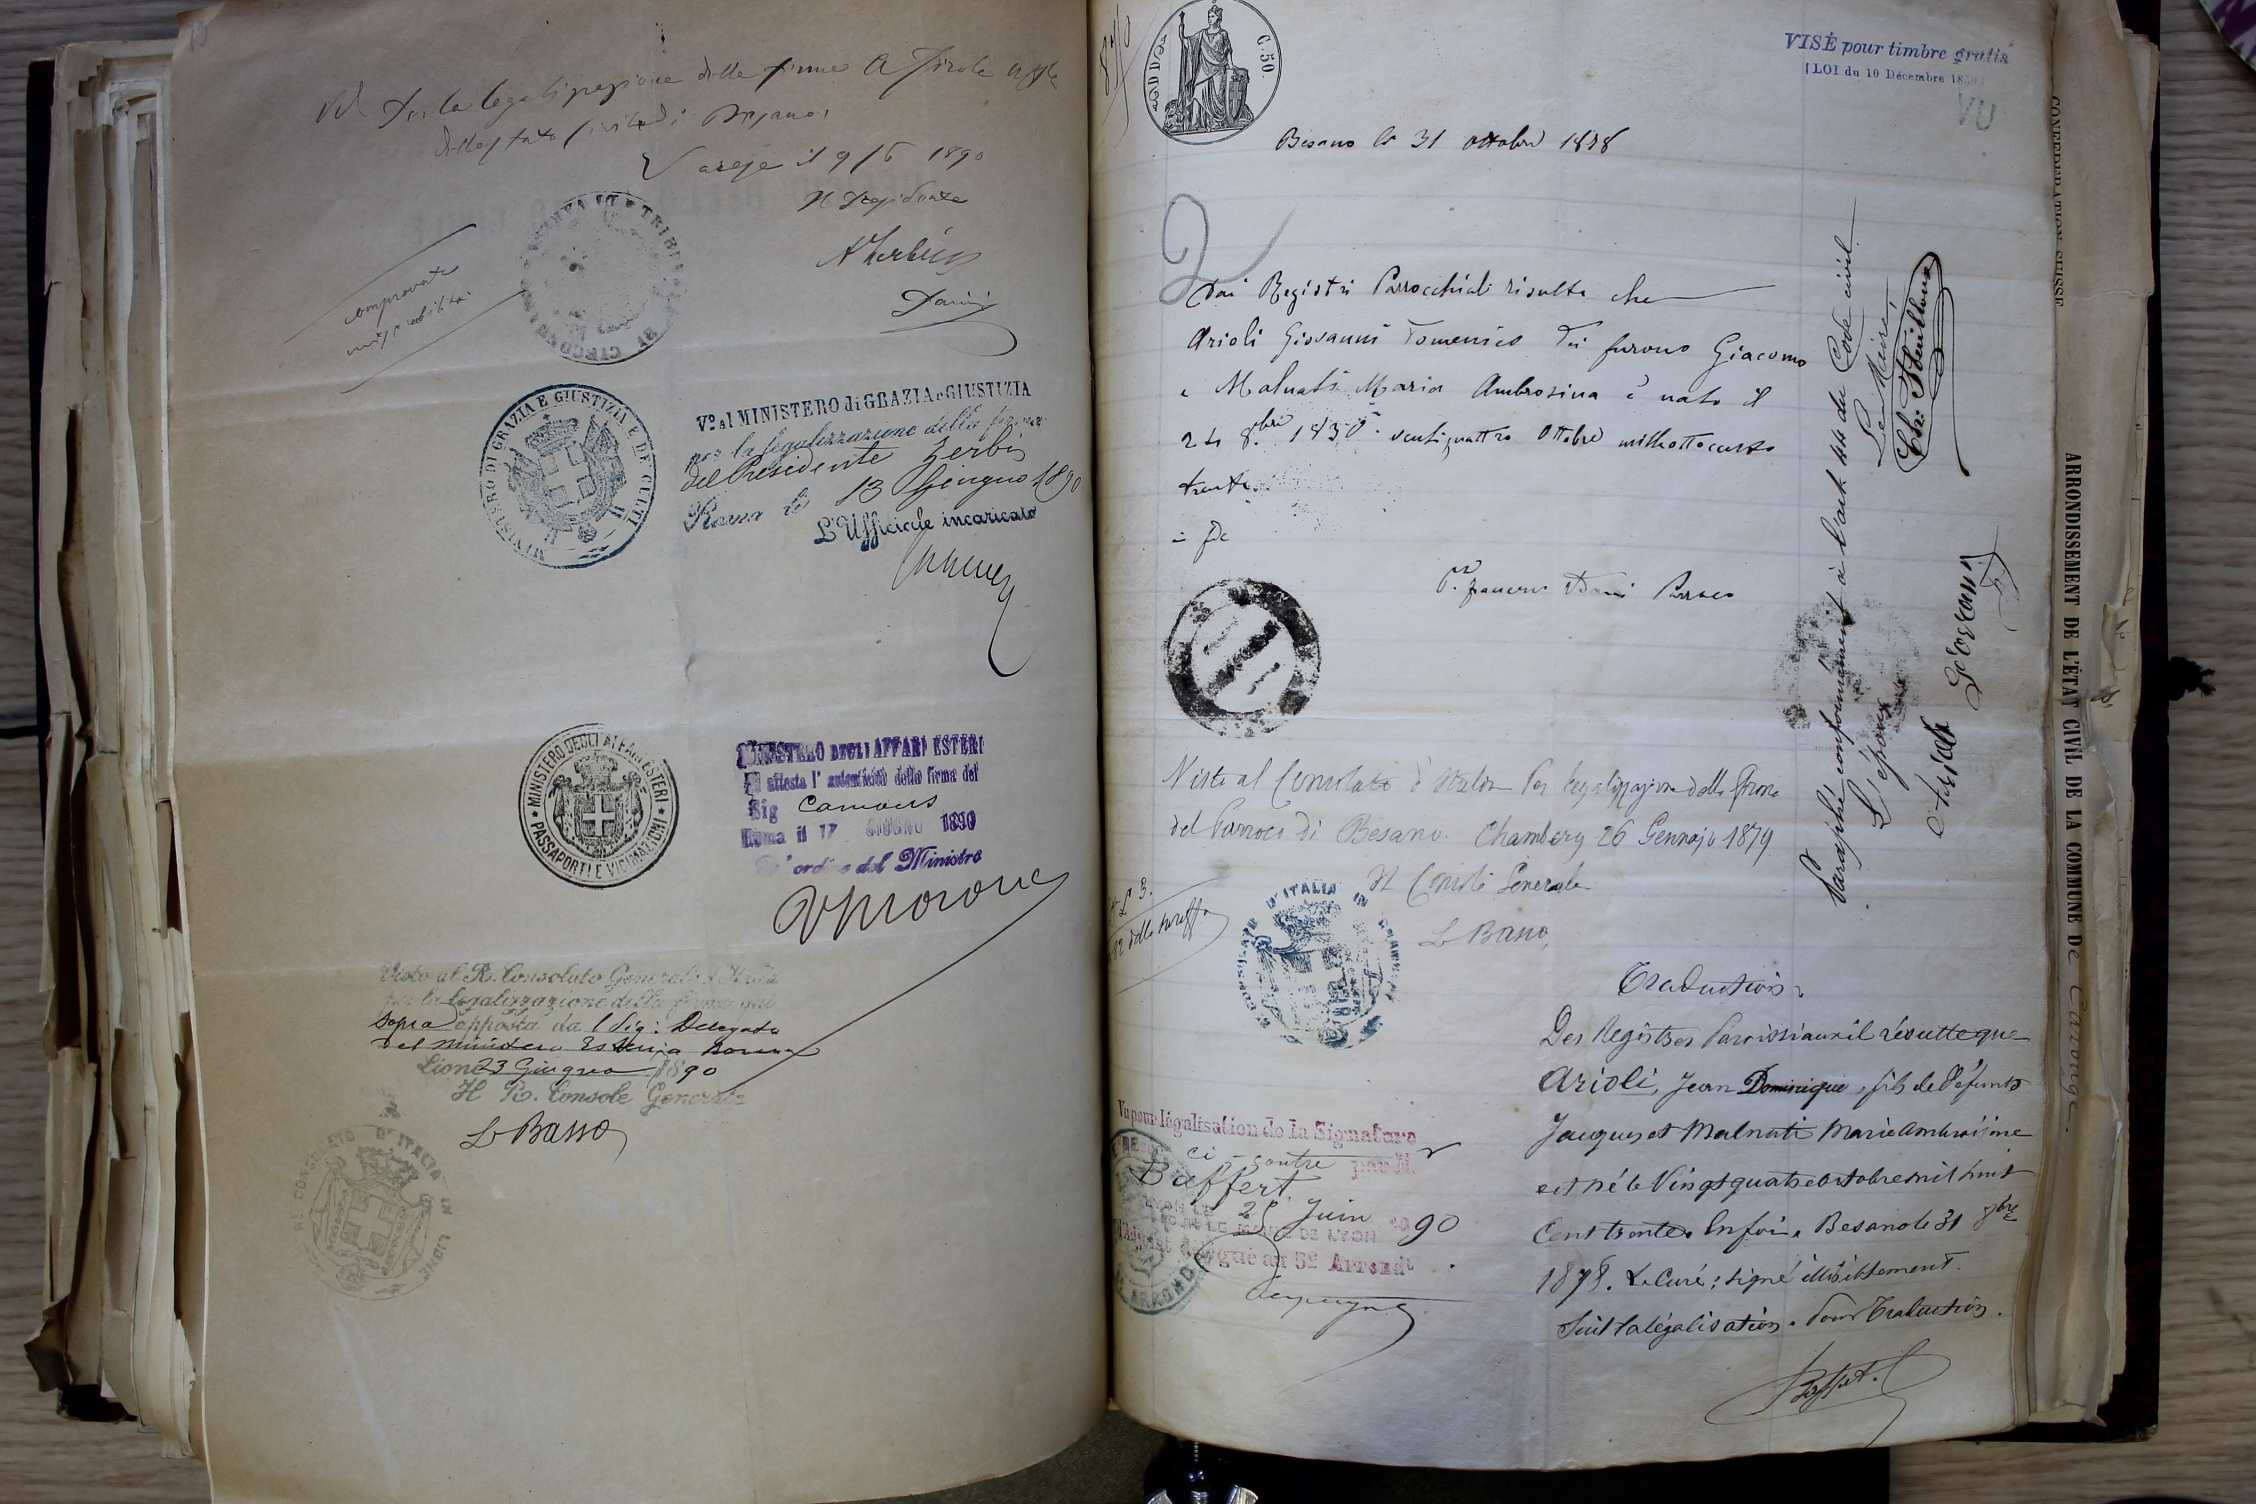 Vo Per la legalizzazione della firma
dello stato civile di
Varese il 9/6 1890
Il Presidente
comprovata
MINISTERO DI GRAZIA E GIUSTIZIA E DE CULTI
Vº al MINISTERO di GRAZIA e GIUSTIZIA
per la legalizzazione della firma
del Presidente Zerbi
Roma li 13 Giugno 1890
L'Ufficiale incaricato
MINISTERO DEGLI AFFARI ESTERI
PASSAPORTI E VIDIMAZIONI
MINISTERO DEGLI AFFARI ESTERI
Si attesta l'autenticità della firma del
Sig
Roma il 17 GIUGNO 1890
D'ordine del Ministro
Visto al R. Consolato Generale d'Italia
per la legalizzazione della firma qui
sopra apposta dal Sig: Delegato
del
Lione 23 Giugno 1890
Il R. Console Generale
L Basso
R. CONSOLATO D'ITALIA IN LIONE
C. 50
VISÉ pour timbre gratis
[LOI du 10 Décembre
VU
Besano li 31 ottobre 1878
Dai Registri Parrocchiali risulta che
Arioli Giovanni Domenico dei furono Giacomo
e Malnati Maria Ambrosina è nato il
24 8bre 1830. ventiquattro Ottobre milleottocento
trenta.
in fede
Parroco
Visto al Consolato d'Italia per legalizzazione della firma
del Parroco di Besano. Chambery 26 Gennajo 1879
Il Console Generale
L Basso
Paraphé conformément à l'art 44 du Code civil.
Le Maire
L'époux
Arioli Giovanni
Traduction.
Des Registres Paroissiaux il résulte que
Arioli, Jean Dominique, fils de défunts
Jacques et Malnati Marie Ambroisine
est né le Vingt quatre octobre mil huit
Cent trente. En foi. Besano le 31 8bre
1878. Le Curé: signé illisiblement.
Suit la légalisation. Pour Traduction.
Buffert
Vu pour légalisation de la Signature
ci-contre par M.
Buffert
Juin 90
CONFEDERATION SUISSE
ARRONDISSEMENT DE L'ÉTAT CIVIL DE LA COMMUNE DE Carouge